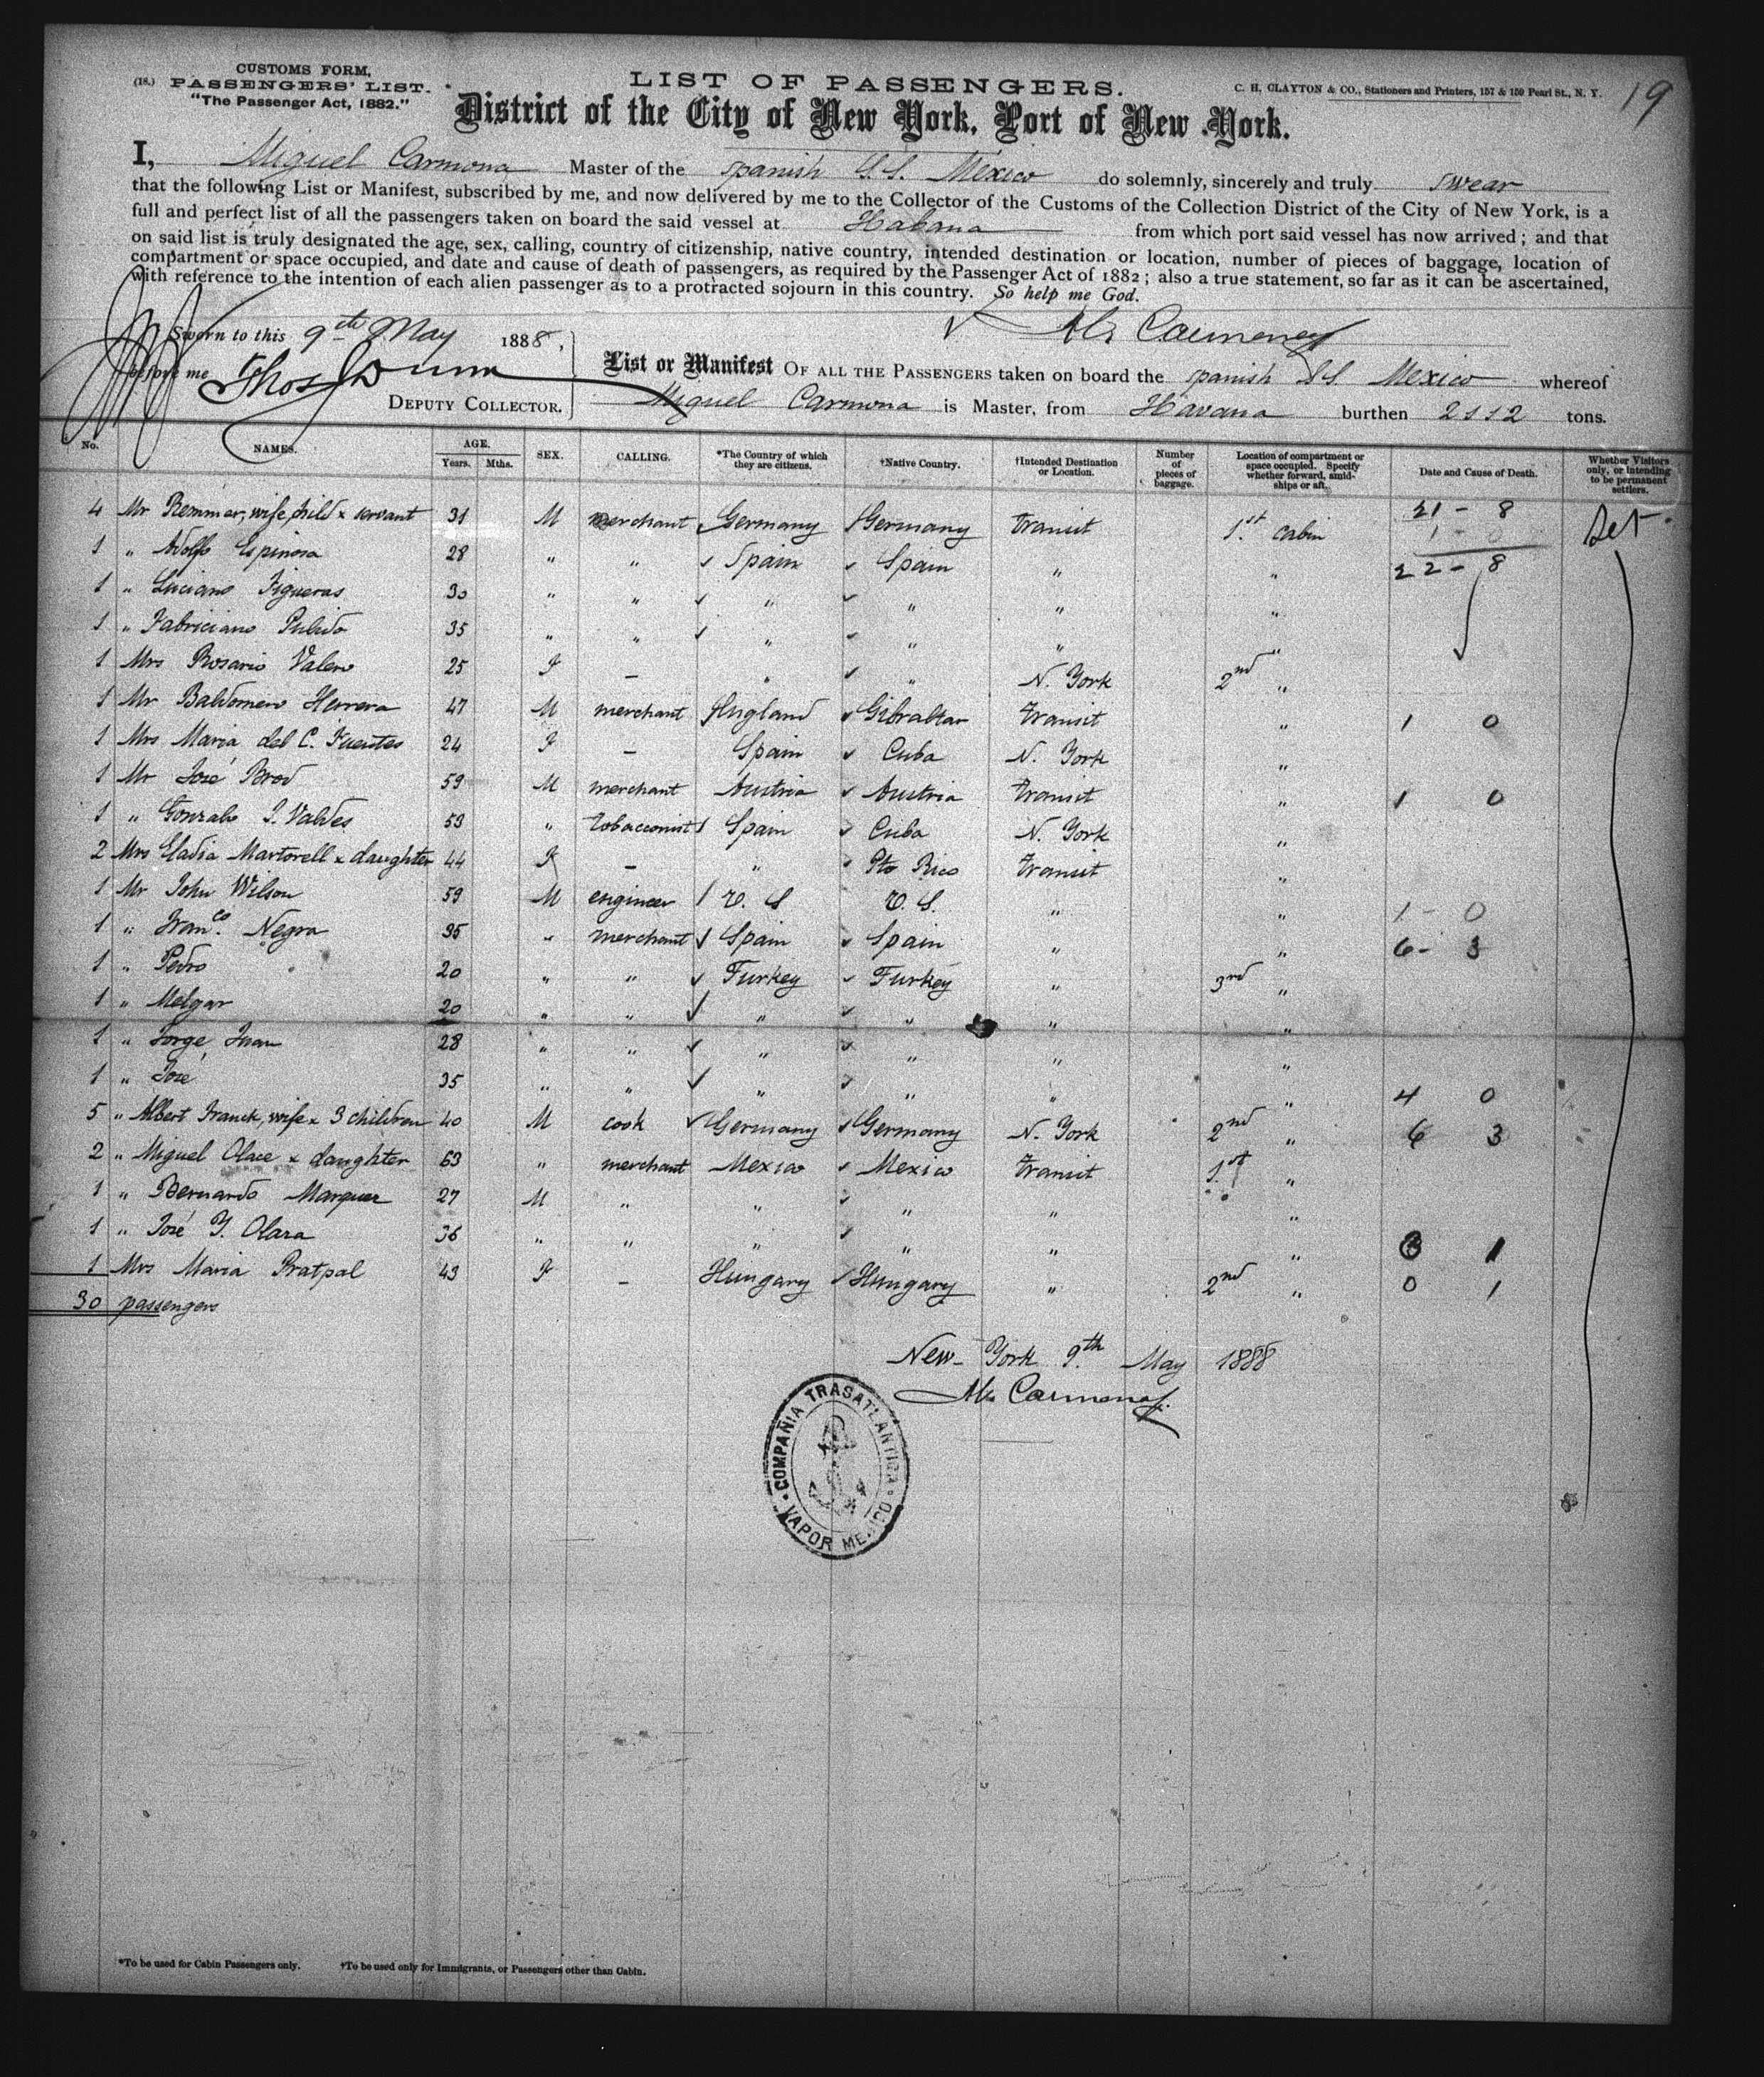 CUSTOMS FORM,
(18.) PASSENGERS' LIST.
"The Passenger Act, 1882."
LIST OF PASSENGERS.
C. H. CLAYTON & CO., Stationers and Printers, 157 & 159 Pearl St., N. Y.
19
District of the City of New York, Port of New York.
I, Miguel Carmona Master of the spanish S.S. Mexico do solemnly, sincerely and truly swear
that the following List or Manifest, subscribed by me, and now delivered by me to the Collector of the Customs of the Collection District of the City of New York, is a
full and perfect list of all the passengers taken on board the said vessel at Habana from which port said vessel has now arrived; and that
on said list is truly designated the age, sex, calling, country of citizenship, native country, intended destination or location, number of pieces of baggage, location of
compartment or space occupied, and date and cause of death of passengers, as required by the Passenger Act of 1882; also a true statement, so far as it can be ascertained,
with reference to the intention of each alien passenger as to a protracted sojourn in this country. So help me God.
Sworn to this 9th May 1888,
before me Thos Dunn
DEPUTY COLLECTOR.
Carmona
List or Manifest OF ALL THE PASSENGERS taken on board the spanish S.S. Mexico whereof
Miguel Carmona is Master, from Havana burthen 2112 tons.
No. NAMES. AGE. Years. Mths. SEX. CALLING. *The Country of which they are citizens. †Native Country. †Intended Destination or Location. Number of pieces of baggage. Location of compartment or space occupied. Specify whether forward, amidships or aft. Date and Cause of Death. Whether Visitors only, or intending to be permanent settlers.
4 Mr Remmer, wife, child & servant 31 M merchant Germany Germany transit 1st cabin 21 - 8
1 " Adolfo Espinosa 28 " " Spain Spain " " 1 - 0
22 - 8
1 " Luciano Figueras 30 " " " " " "
1 " Fabriciano Pulido 35 " " " " " "
1 Mrs Rosario Valero 25 F — " " N. York 2nd "
1 Mr Baldomero Herrera 47 M merchant England Gibraltar transit " 1 0
1 Mrs Maria del C. Fuentes 24 F — Spain Cuba N. York "
1 Mr José Brod 59 M merchant Austria Austria transit " 1 0
1 " Gonzalo S. Valdes 59 " tobacconist Spain Cuba N. York "
2 Mrs Eladia Martorell & daughter 44 F — " Pto Rico transit "
1 Mr John Wilson 59 M engineer U. S U. S. " " 1 - 0
1 " Franco. Negra 35 " merchant Spain Spain " " 6 - 3
1 " Pedro 20 " " Turkey Turkey " 3rd "
1 " Melgar 20 " " " " " "
1 " Jorge Juan 28 " " " " " "
1 " José 35 " " " " " " 4 0
5 " Albert Franck, wife & 3 children 40 M cook Germany Germany N. York 2nd " 6 3
2 " Miguel Olace & daughter 63 " merchant Mexico Mexico transit 1st "
1 " Bernardo Marquez 27 M " " " " "
1 " José Y. Olara 36 " " " " " " 3 1
1 Mrs Maria Pratpal 43 F — Hungary Hungary " 2nd " 0 1
30 passengers
New-York 9th May 1888
Carmona
COMPAÑIA TRASATLANTICA
VAPOR MEXICO
*To be used for Cabin Passengers only. †To be used only for Immigrants, or Passengers other than Cabin.